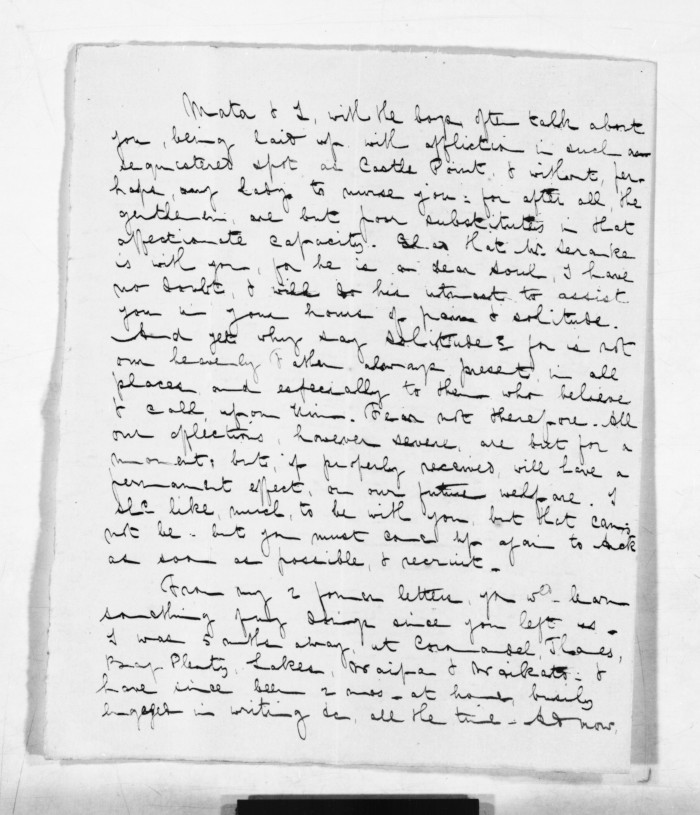 Mata & I, with the boys often talk about
you, being laid up with affliction in such a
sequestered spot as Castle Point, & without, per-
haps, any lady to nurse you: for after all, the
gentlemen, are but poor substitutes in that
affectionate capacity. Glad that Mr.
is with you, for he is a dear soul, I have
no doubt, & will do his utmost to assist
you in your hours of pain & solitude.
And yet why say solitude? for is not
our heavenly Father always present, in all
places, and especially to them who believe
& call upon Him. Fear not therefore. All
our afflictions, however severe, are but for a
moment, but, if properly received, will have a
permanent effect, on our future welfare. I
shd like, much, to be with you, but that can
not be - but you must come up again to Auck
as soon as possible, & recruit -
From my 2 former letters, you wd learn
something of my doings since you left us -
I was 5 mths away, at Coromandel, Thames,
Bay Plenty, Lakes, Waipa & Waikato - &
have since been 2 mos - at home, busily
engaged in writing &c, all the time - And now,